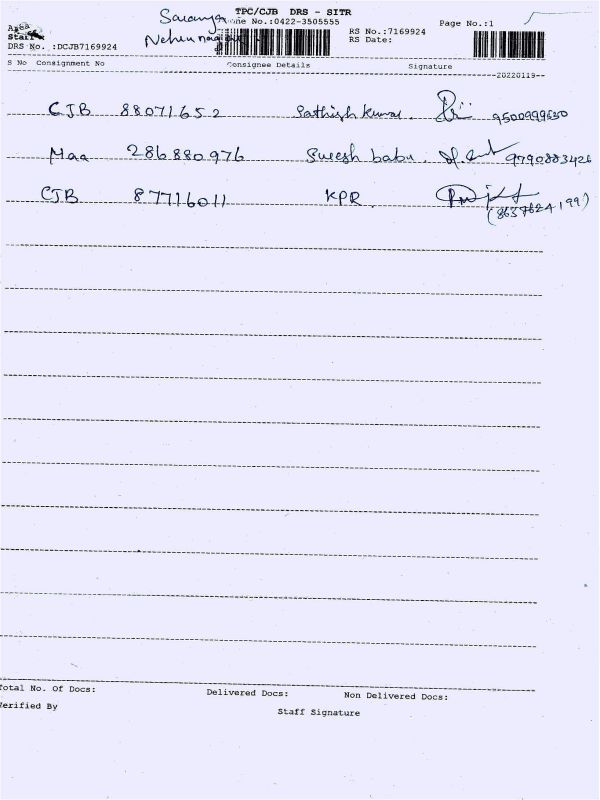 TPC/CJB DRS - SITR
Saranya
Phone No.:0422-3505555
Page No.:1
Area
Nehru nagar
RS No.:7169924
Staff
RS Date:
DRS No. :DCJB7169924
S No Consignment No Consignee Details Signature
20220119
CJB 88071652 Sathish kumar. 9500999650
Maa 286880976 Suresh babu. 9790883426
CJB 87716011 KPR.
(8637624199)
Total No. Of Docs: Delivered Docs: Non Delivered Docs:
Verified By Staff Signature